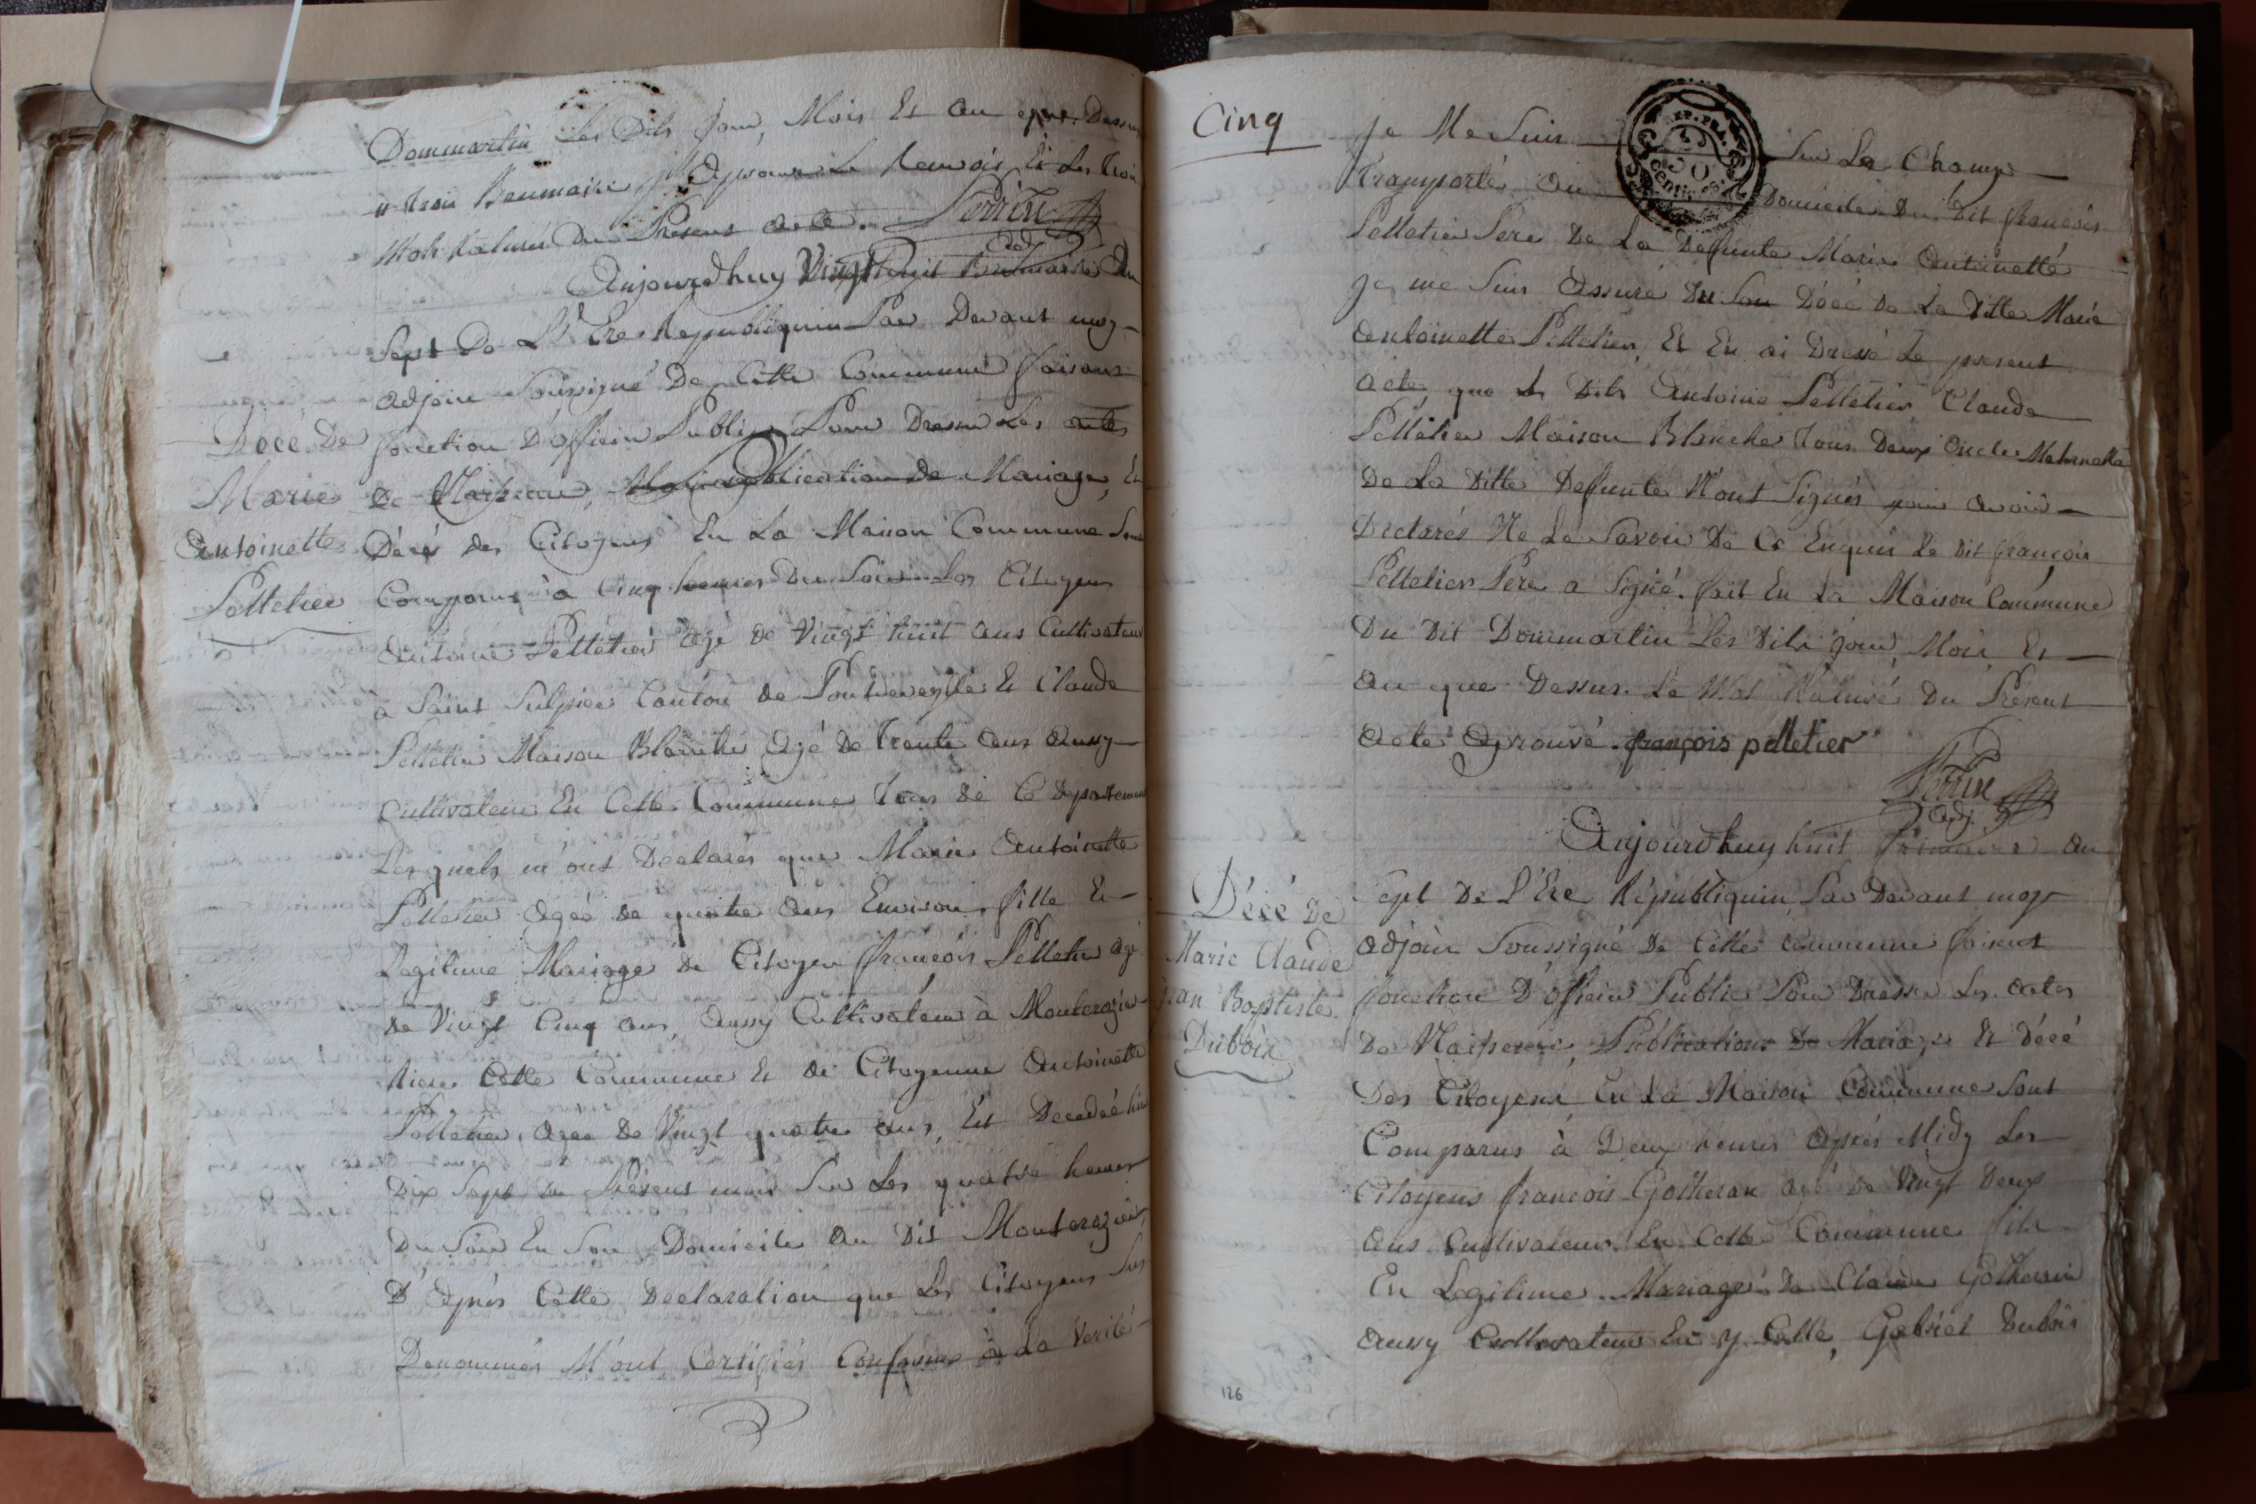 Dommartin Les Dits Jour, Mois Et an que Dessus
trois Brumaire, aprouve Le Renvois Et Les trois
Mots Raturés Du Présent acte. Perrin
adj
Aujourdhuy Vingt huit Brumaire an
Sept De L'Ere Republiquin Par Devant moy
adjoin Soussigné De Cette Commune faisant
Décé De
fonction D'officier Public Pour Dresser Les actes
Marie
De Naissance, Publication de Mariage, Et
Antoinette
Décé des Citoyens En La Maison Commune Sont
Pelletier
Comparus à Cinq heures Du Soir Les Citoyens
Antoine Pelletier agé de Vingt huit ans Cultivateur
à Saint Sulpice Canton de Pontdeveyle Et Claude
Pelletier Maison Blanche agé De Trente ans aussy
Cultivateur En Cette Commune Tous de Ce département
Lesquels m'ont Declarés que Marie Antoinette
Pelletier agée de quatre ans Environ, fille En
Legitime Mariage de Citoyen françois Pelletier agé
de Vingt Cinq ans, aussy Cultivateur à
Cette Commune Et de Citoyenne Antoinette
Pelletier, agée de Vingt quatre ans, Est Decedée
Dix Sept du Présent mois Sur Les quatre heures
Du Soir En Son Domicile au Dit
D'après Cette Declaration que Les Citoyens Sus
Denommés M'ont Certifiés Conforme à La Verité
Cinq
Je Me Suis Sur Le Champ
REP. FRA.
50
Centimes
Transporté au Domicile Du Dit françois
Pelletier Pere De La Defunte Marie Antoinette
Je me Suis assuré Du Son Décé De La Ditte Marie
Antoinette Pelletier, Et En ai Dressé Le present
acte que Les Dits Antoine Pelletier Claude
Pelletier Maison Blanche Tous Deux oncles
De La Ditte Defunte N'ont Signés pour avoir
Declarés Ne Le Savoir De Ce Enquis Le Dit françois
Pelletier Pere a Signé. fait En La Maison Commune
Du Dit Dommartin Les Dits jour, Mois Et
an que Dessus. Le Mot Raturé Du Présent
acte aprouvé. françois pelletier
Perrin
adj
Aujourdhuy huit frimaire an
Sept De L'Ere Républiquin, Par Devant moy
Décé De
adjoin Soussigné De Cette Commune faisant
Marie Claude
fonction D'officier Public Pour Dresser Les actes
Jean Baptiste
De Naissance, Publication De Mariage Et Décé
Dubois
Des Citoyens En La Maison Commune Sont
Comparus à Deux heures après Midy Les
Citoyens francois Gotheran agé De Vingt Deux
ans Cultivateur En Cette Commune fils
En Legitime Mariage de Claude
aussy Cultivateur En y Celle, Gabriel Dubois
126